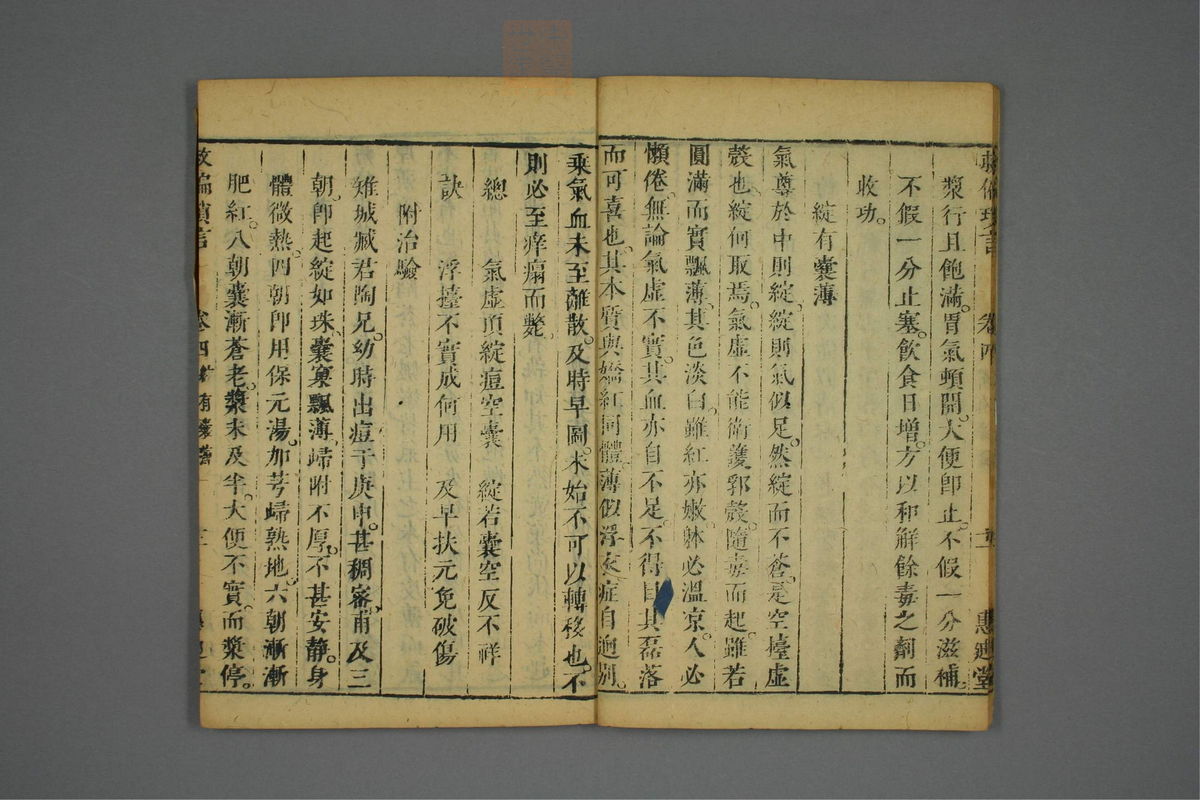 漿行且飽滿。胃氣頓開。大便卽止。不假一分滋補。
不假一分止塞。飲食日增。方以和解餘毒之劑而
收功。
綻有囊薄
氣尊於中則綻。綻則氣似足。然綻而不蒼。是空擡虛
殼也。綻何取焉。氣虛不能衛護郭殼。隨毒而起。雖若
圓滿而實飄薄。其色淡白。雖紅亦嫩。躰必溫凉。人必
懶倦。無論氣虛不實。其血亦自不足。不得目其磊落
而可喜也。其本質與嬌紅同體。薄似浮衣。症自逈別。
乘氣血未至離散。及時早圖。未始不可以轉移也。不
則必至痒瘍而斃。
總　氣虛頂綻痘空囊　綻若囊空反不祥
訣　浮擡不實成何用　及早扶元免破傷
附治驗
雉城臧君陶兄。幼時出痘于庚申。甚稠密。甫及三
朝。卽起綻如珠。囊窠飄薄。歸附不厚。不甚安靜。身
體微熱。四朝卽用保元湯。加芎歸熟地。六朝漸漸
肥紅。八朝囊漸蒼老。漿未及半。大便不實。而漿停。
卷四 綻有囊薄